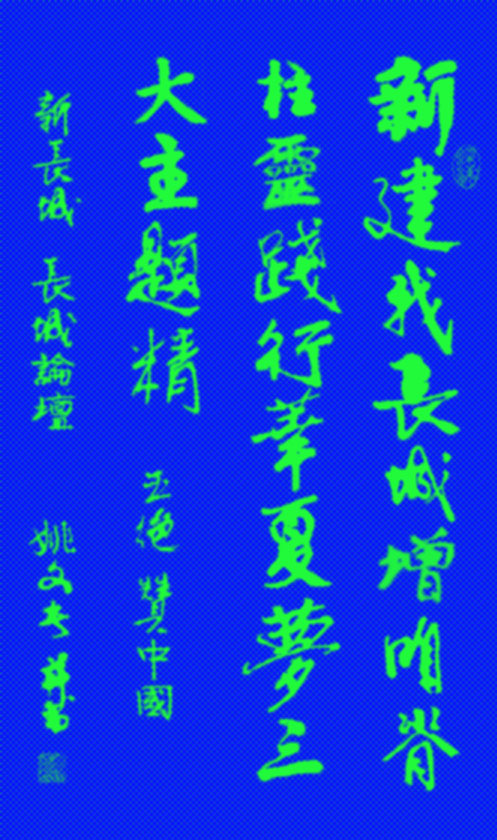 新建我長城增明脊
柱靈踐行華夏夢三
大主題精
玉絕 贊中國
新長城 長城論壇
姚文考 并書